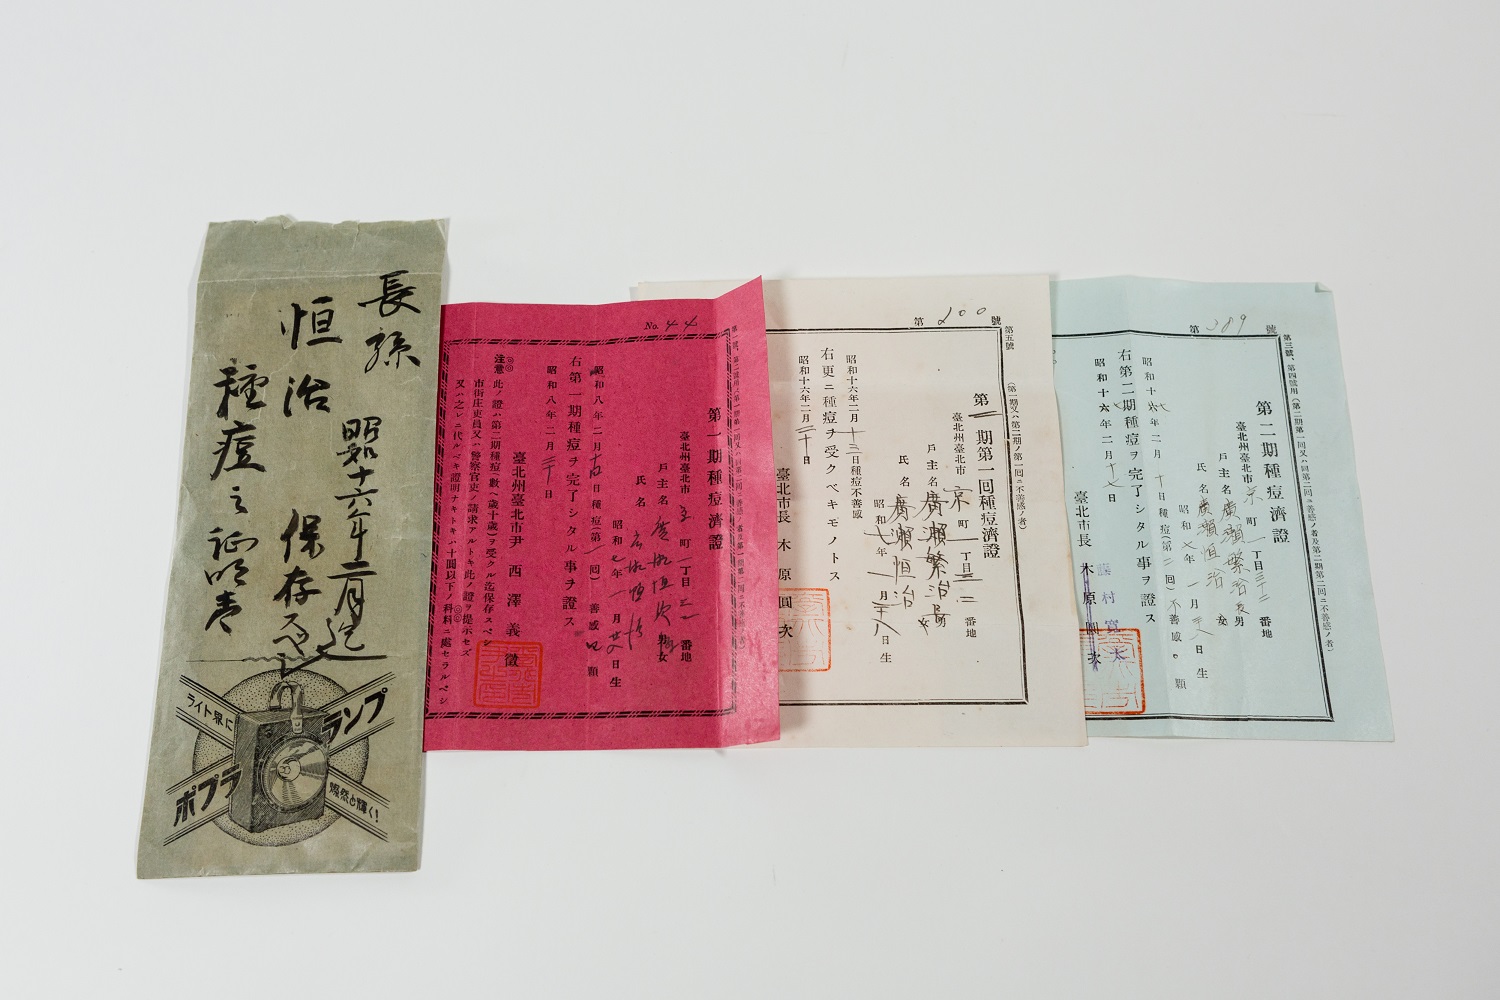 長孫
恒治
昭和十六年二月迄
保存
種痘之証明書
ライト界に
ランプ
ポプラ
燦然と輝く!
No. 44
第一期種痘濟證
臺北州臺北市
町一丁目
番地
戶主名
氏名
昭和七年一月廿八日生
昭和八年二月
日種痘(第一回)善感四顆
右第一期種痘ヲ完了シタル事ヲ證ス
昭和八年二月二十日
臺北州臺北市尹 西澤義徵
注意 此ノ證ハ第二期種痘(數ヘ歲十歲)ヲ受クル迄保存スベシ
市街庄吏員又ハ警察官吏ノ請求アルトキ此ノ證ヲ提示セズ
又ハ之レニ代ルベキ證明ナキトキハ十圓以下ノ科料ニ處セラルベシ
第200號
第五號
(第一期又ハ第二期ノ第一回ニ不善感ノ者)
第二期第一回種痘濟證
臺北州臺北市京町一丁目
番地
戶主名 廣瀨繁治 長男
氏名 廣瀨恒治
昭和七年一月二十八日生
昭和十六年二月十三日種痘不善感
右更ニ種痘ヲ受クベキモノトス
昭和十六年二月二十日
臺北市長 木原圓次
第389號
第三號、第四號用(第二期第一回又ハ同第二回ニ善感ノ者及第二期第二回ニ不善感ノ者)
第二期種痘濟證
臺北州臺北市京町一丁目三十二番地
戶主名 廣瀨繁治 長男
女
氏名 廣瀨恒治
昭和七年一月二十八日生
昭和十七年二月十日種痘(第二回)不善感
顆
右第二期種痘ヲ完了シタル事ヲ證ス
昭和十七年二月十七日
臺北市長 木原圓次